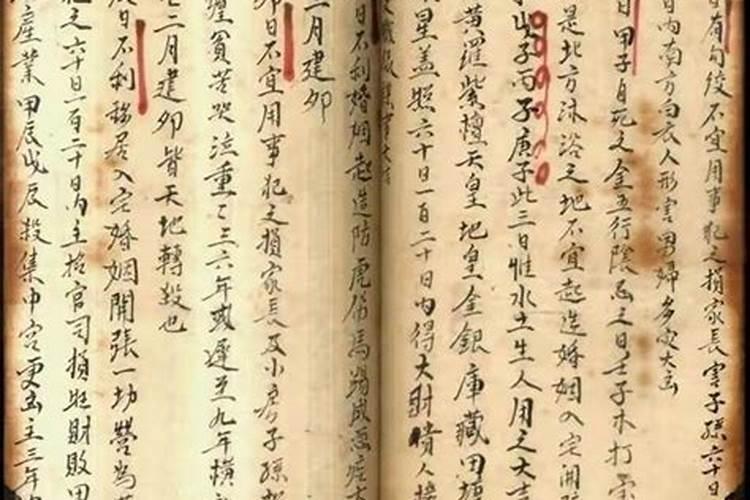 日有勾絞不宜用事犯之損家長害子孫六十日
日內南方白衣人形害男婦多灾大凶
日甲子自死之金五行陰忌之日壬子木打
是北方沐浴之地不宜起造婚姻入宅開
子丙子庚子此三日惟水土生人用之大吉
黃羅紫檀天皇地皇金銀庫藏田塘
星蓋照六十日一百二十日內得大財貴人接
日不利婚姻起造防虎傷馬踢成惡疾
二月建卯
卯日不宜用事犯之損家長及小房子孫
纏貧苦哭泣重重三六年或遲至九年橫
二月建卯皆天地轉殺也
日不利移居入宅婚姻開張一切營為
犯之六十日一百二十日內主招官司損財敗田
產業甲辰戊辰殺集中宮更凶主三年